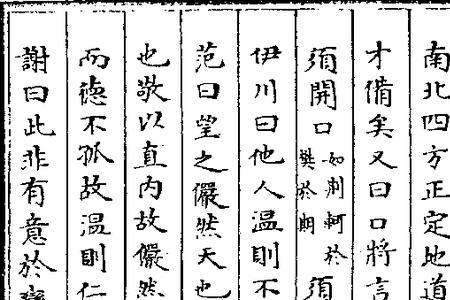 南北四方正定地道
才備矣又曰口將言
須開口如荆軻於樊於期須
伊川曰他人温則不
范曰望之儼然天也
也敬以直内故儼然
而德不孤故温則仁
謝曰此非有意於變